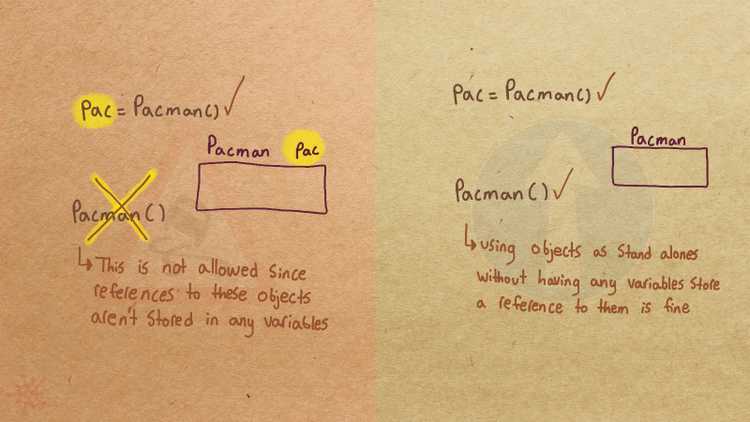 Pac = Pacman() ✓
Pacman Pac
Pacman()
↳ This is not allowed since
references to these objects
aren't stored in any variables
Pac = Pacman() ✓
Pacman
Pacman() ✓
↳ using objects as stand alones
without having any variables store
a reference to them is fine